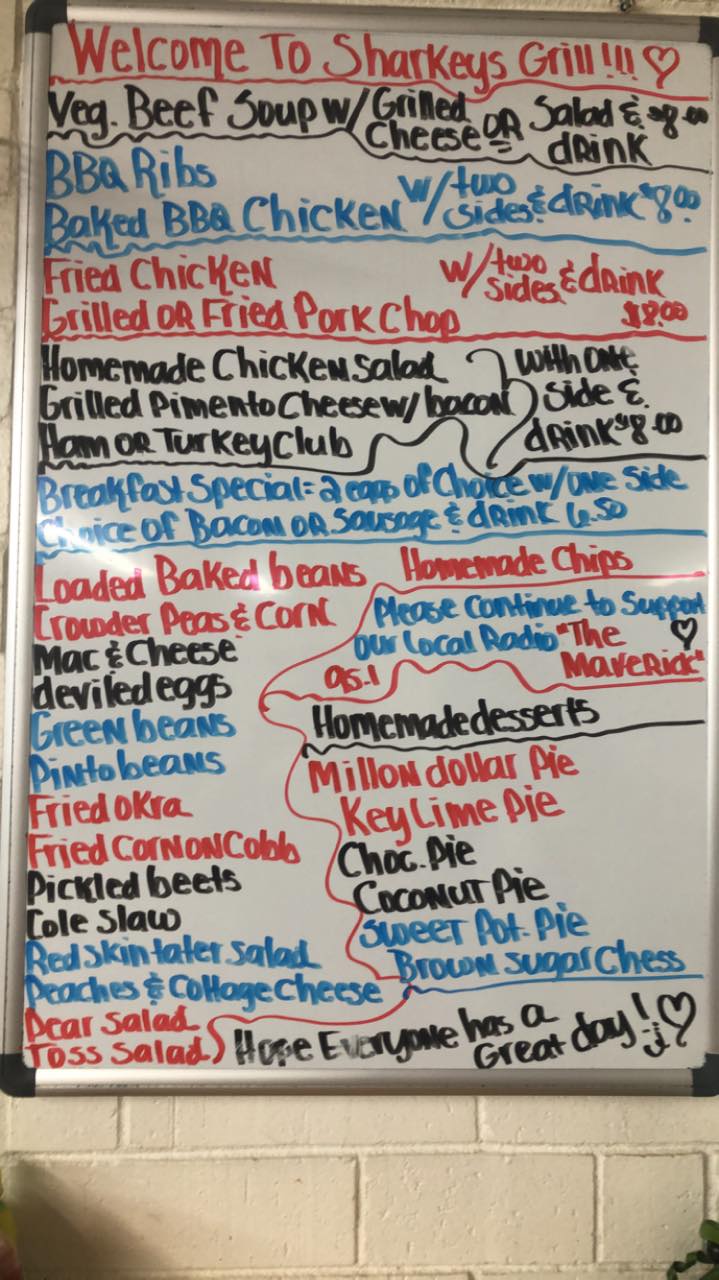 Welcome To Sharkeys Grill!!! ♡
Veg. Beef Soup w/ Grilled Cheese OR Salad & drink $8.00
BBQ Ribs
Baked BBQ Chicken w/ two sides & drink $8.00
Fried Chicken
Grilled OR Fried Pork Chop w/ two sides & drink $8.00
Homemade Chicken Salad
Grilled Pimento Cheese w/ bacon
Ham OR Turkey Club
with one side & drink $8.00
Breakfast Special = 2 eggs of Choice w/ one side
Choice of Bacon OR Sausage & drink 6.50
Loaded Baked beans
Crowder Peas & Corn
Mac & Cheese
deviled eggs
Green beans
Pinto beans
Fried okra
Fried Corn on Cobb
Pickled beets
Cole Slaw
Red skin tater salad
Peaches & Cottage Cheese
Pear Salad
Toss Salad
Homemade Chips
Please Continue to Support
our Local Radio "The
95.1 Maverick" ♡
Homemade desserts
Millon dollar Pie
Key Lime Pie
Choc. Pie
Coconut Pie
Sweet Pot. Pie
Brown Sugar Chess
Hope Everyone has a
Great day! :) ♡